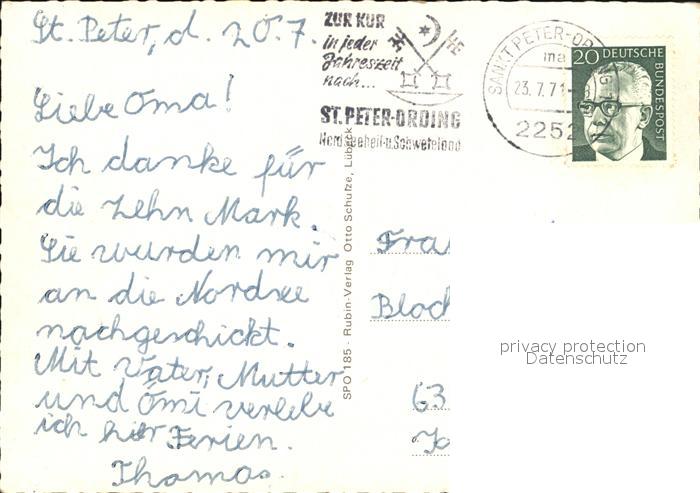 St. Peter, d. 20.7.
Liebe Oma!
Ich danke für
die zehn Mark.
Sie wurden mir
an die Nordsee
nachgeschickt.
Mit Vater, Mutter
und Omi verlebe
ich hier Ferien.
Thomas.
ZUR KUR
in jeder
Jahreszeit
nach...
ST. PETER-ORDING
Nordseeheil-u. Schwefelbad
SANKT PETER-ORDING
ma
23.7.71
2252
20 DEUTSCHE
BUNDESPOST
SPO 185 · Rubin-Verlag Otto Schutze, Lübeck
Frau
Bloch
63
privacy protection
Datenschutz